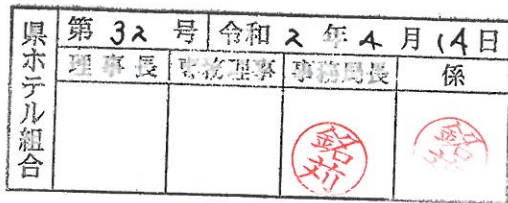 県ホテル組合
第32号 令和2年4月14日
理事長 専務理事 事務局長 係